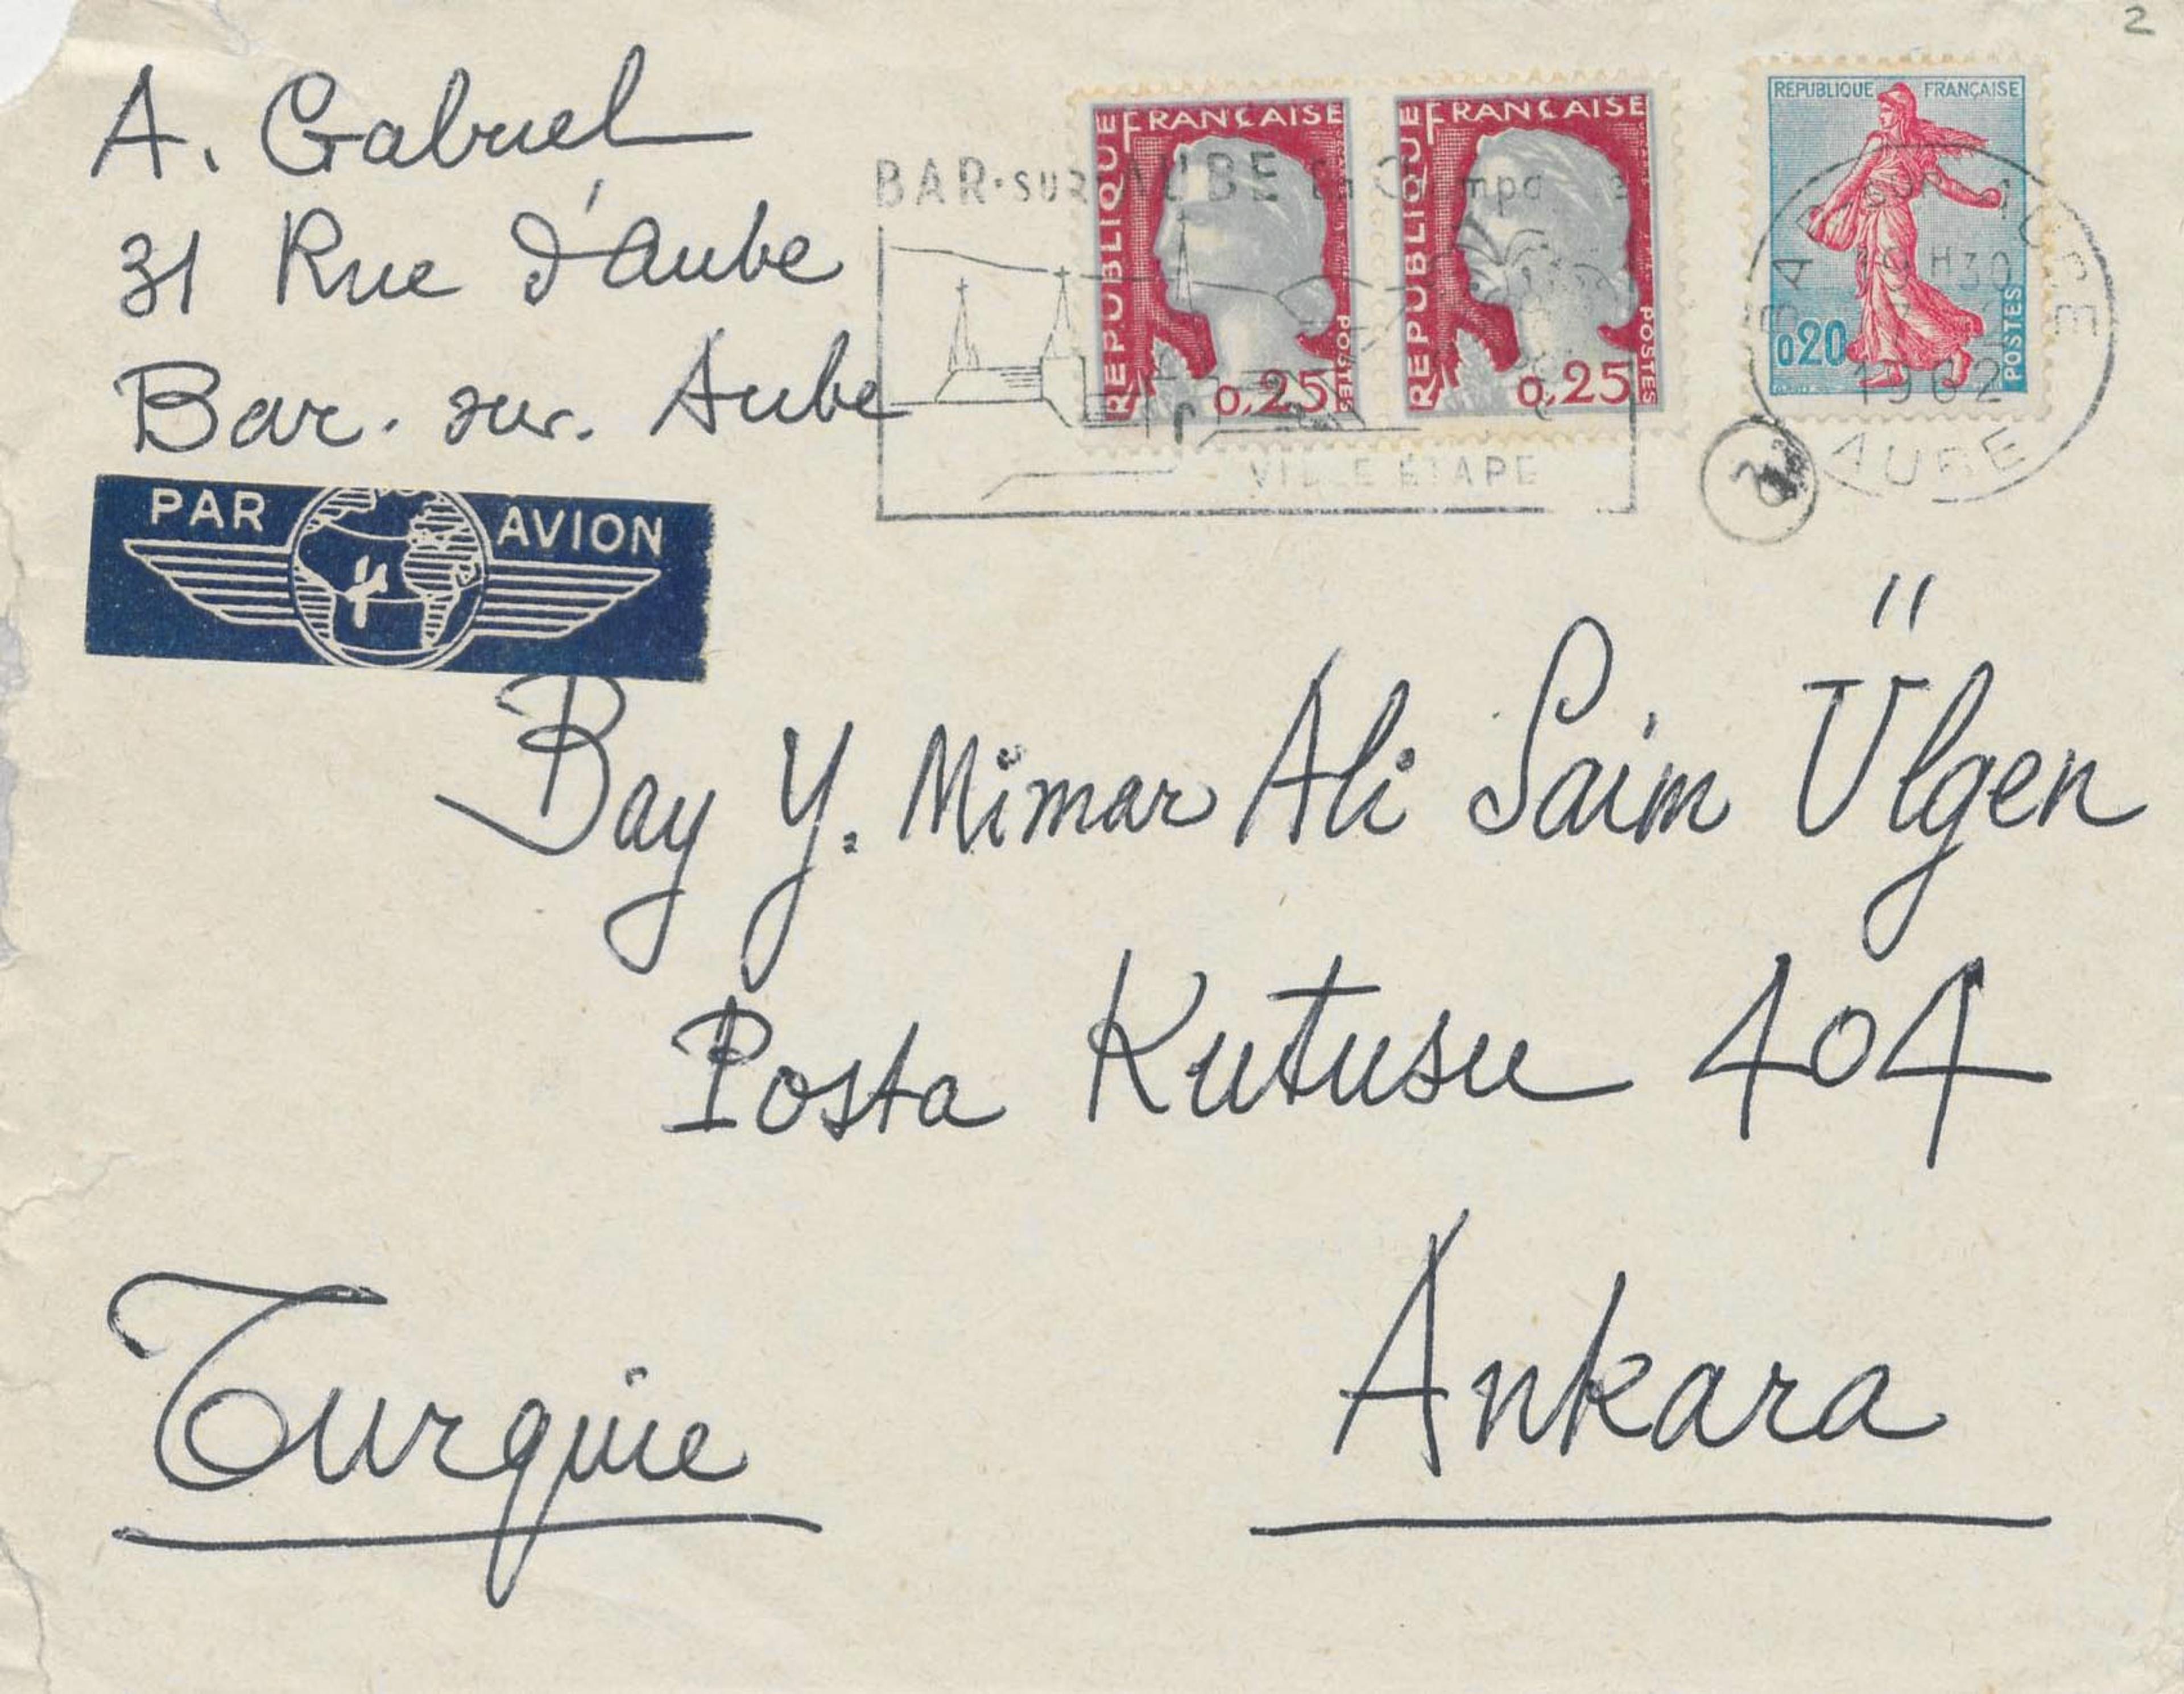 2
A. Gabriel
31 Rue d'Aube
Bar. sur. Aube
PAR AVION
BAR-SUR-AUBE en
VILLE ÉTAPE
REPUBLIQUE FRANÇAISE
0,25 POSTES
REPUBLIQUE FRANÇAISE
0,25 POSTES
REPUBLIQUE FRANÇAISE
0,20 POSTES
BAR SUR AUBE
19H30
1962
AUBE
Bay Y. Mimar Ali Saim Ülgen
Posta Kutusu 404
Ankara
Turquie